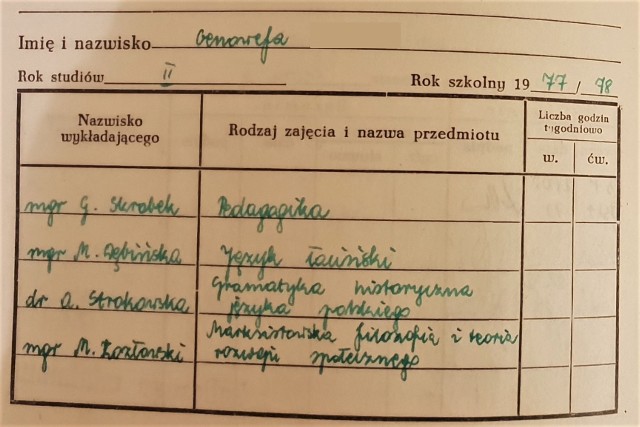 Imię i nazwisko Genowefa
Rok studiów II Rok szkolny 1977/78
Nazwisko wykładającego
Rodzaj zajęcia i nazwa przedmiotu
Liczba godzin tygodniowo
w. ćw.
mgr G. Skrabek Pedagogika
mgr M. Dębińska Język łaciński
dr A. Strokowska Gramatyka historyczna
języka polskiego
mgr M. Kozłowski Marksistowska filozofia i teoria
rozwoju społecznego